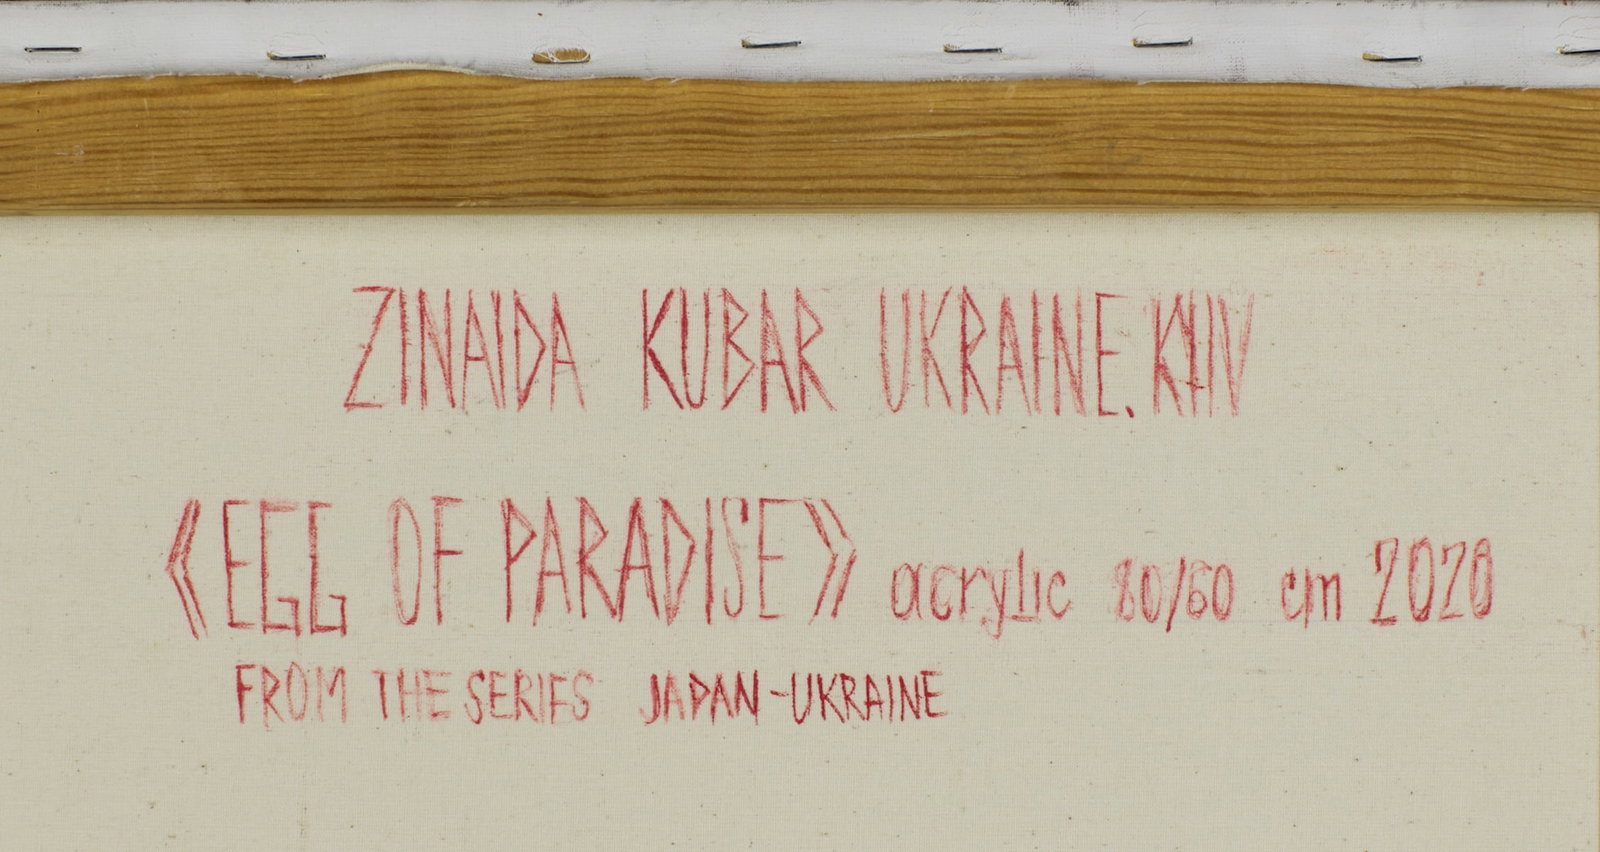 ZINAIDA KUBAR UKRAINE. KIIV
《EGG OF PARADISE》 acrylic 80/60 cm 2020
FROM THE SERIES JAPAN-UKRAINE